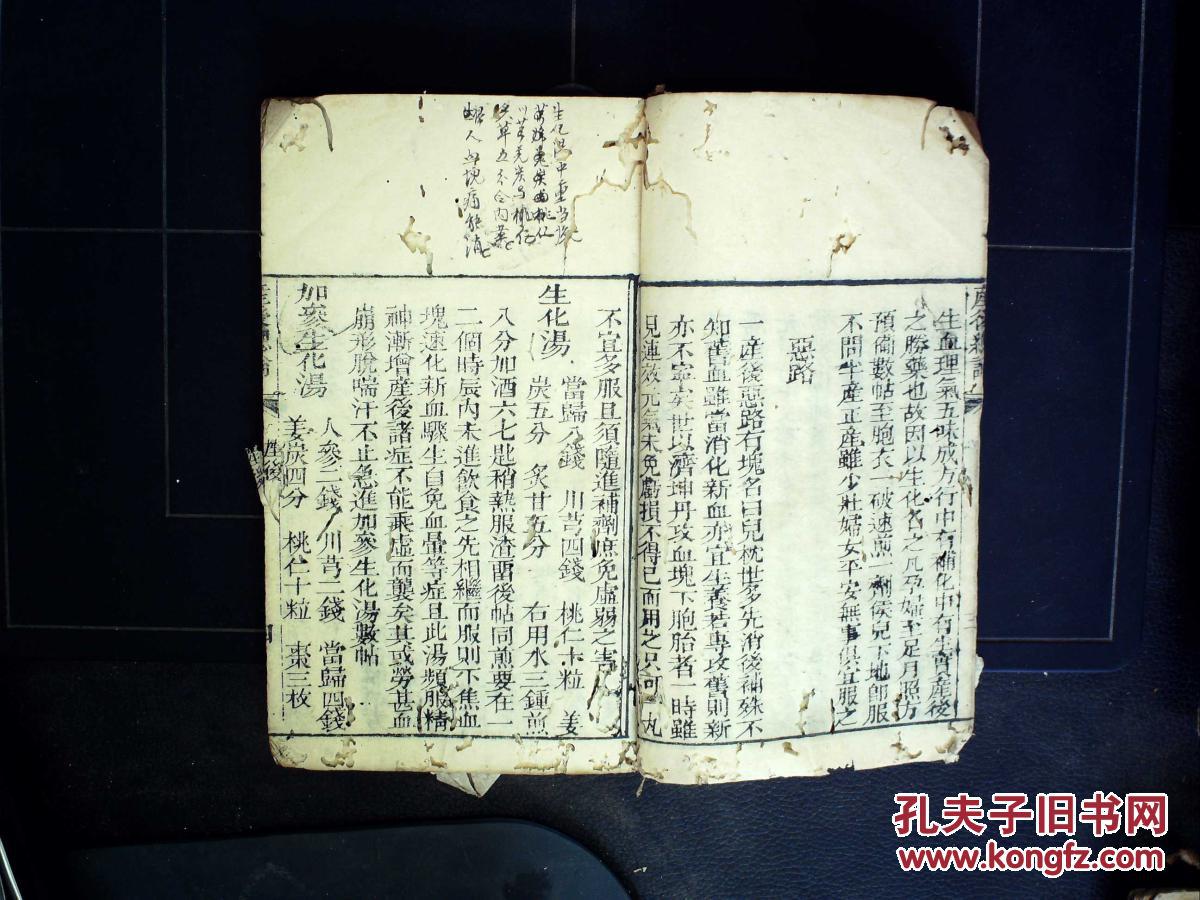 生血理氣五味成方行中有補化中有生實產後
之勝藥也故因以生化名之凡孕婦至足月照方
預備數帖至胞衣一破速煎一劑候兒下地卽服
不問半產正產雖少壯婦女平安無事俱宜服之
惡路
一產後惡路有塊名曰兒枕世多先消後補殊不
知舊血雖當消化新血亦宜生養若專攻舊則新
亦不寧矣世以濟坤丹攻血塊下胞胎者一時雖
見速效元氣未免虧損不得已而用之只可一丸
不宜多服且須隨進補劑庶免虛弱之害
生化湯 當歸八錢 川芎四錢 桃仁十粒 姜
炭五分 炙甘五分 右用水三鍾煎
八分加酒六七匙稍熱服渣畱後帖同煎要在一
二個時辰內未進飲食之先相繼而服則下焦血
塊速化新血驟生自免血暈等症且此湯頻服精
神漸增產後諸症不能乘虛而襲矣其或勞甚血
崩形脫喘汗不止急進加參生化湯數帖
加參生化湯 人參三錢 川芎二錢 當歸四錢
姜炭四分 桃仁十粒 棗三枚
生化湯中重當歸
產後
孔夫子旧书网
www.kongfz.com